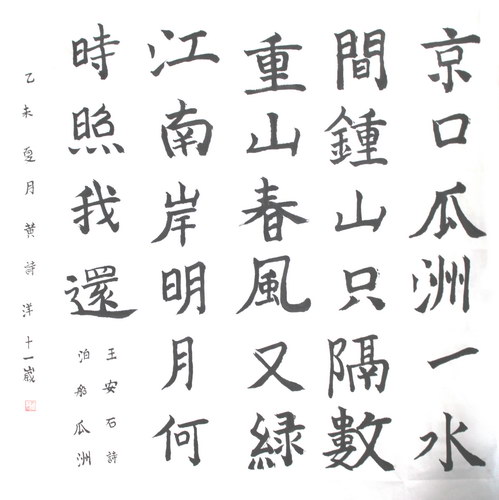 京口瓜洲一水
間鍾山只隔數
重山春風又緑
江南岸明月何
時照我還
王安石詩
泊船瓜洲
乙未夏月黄詩洋十一歲